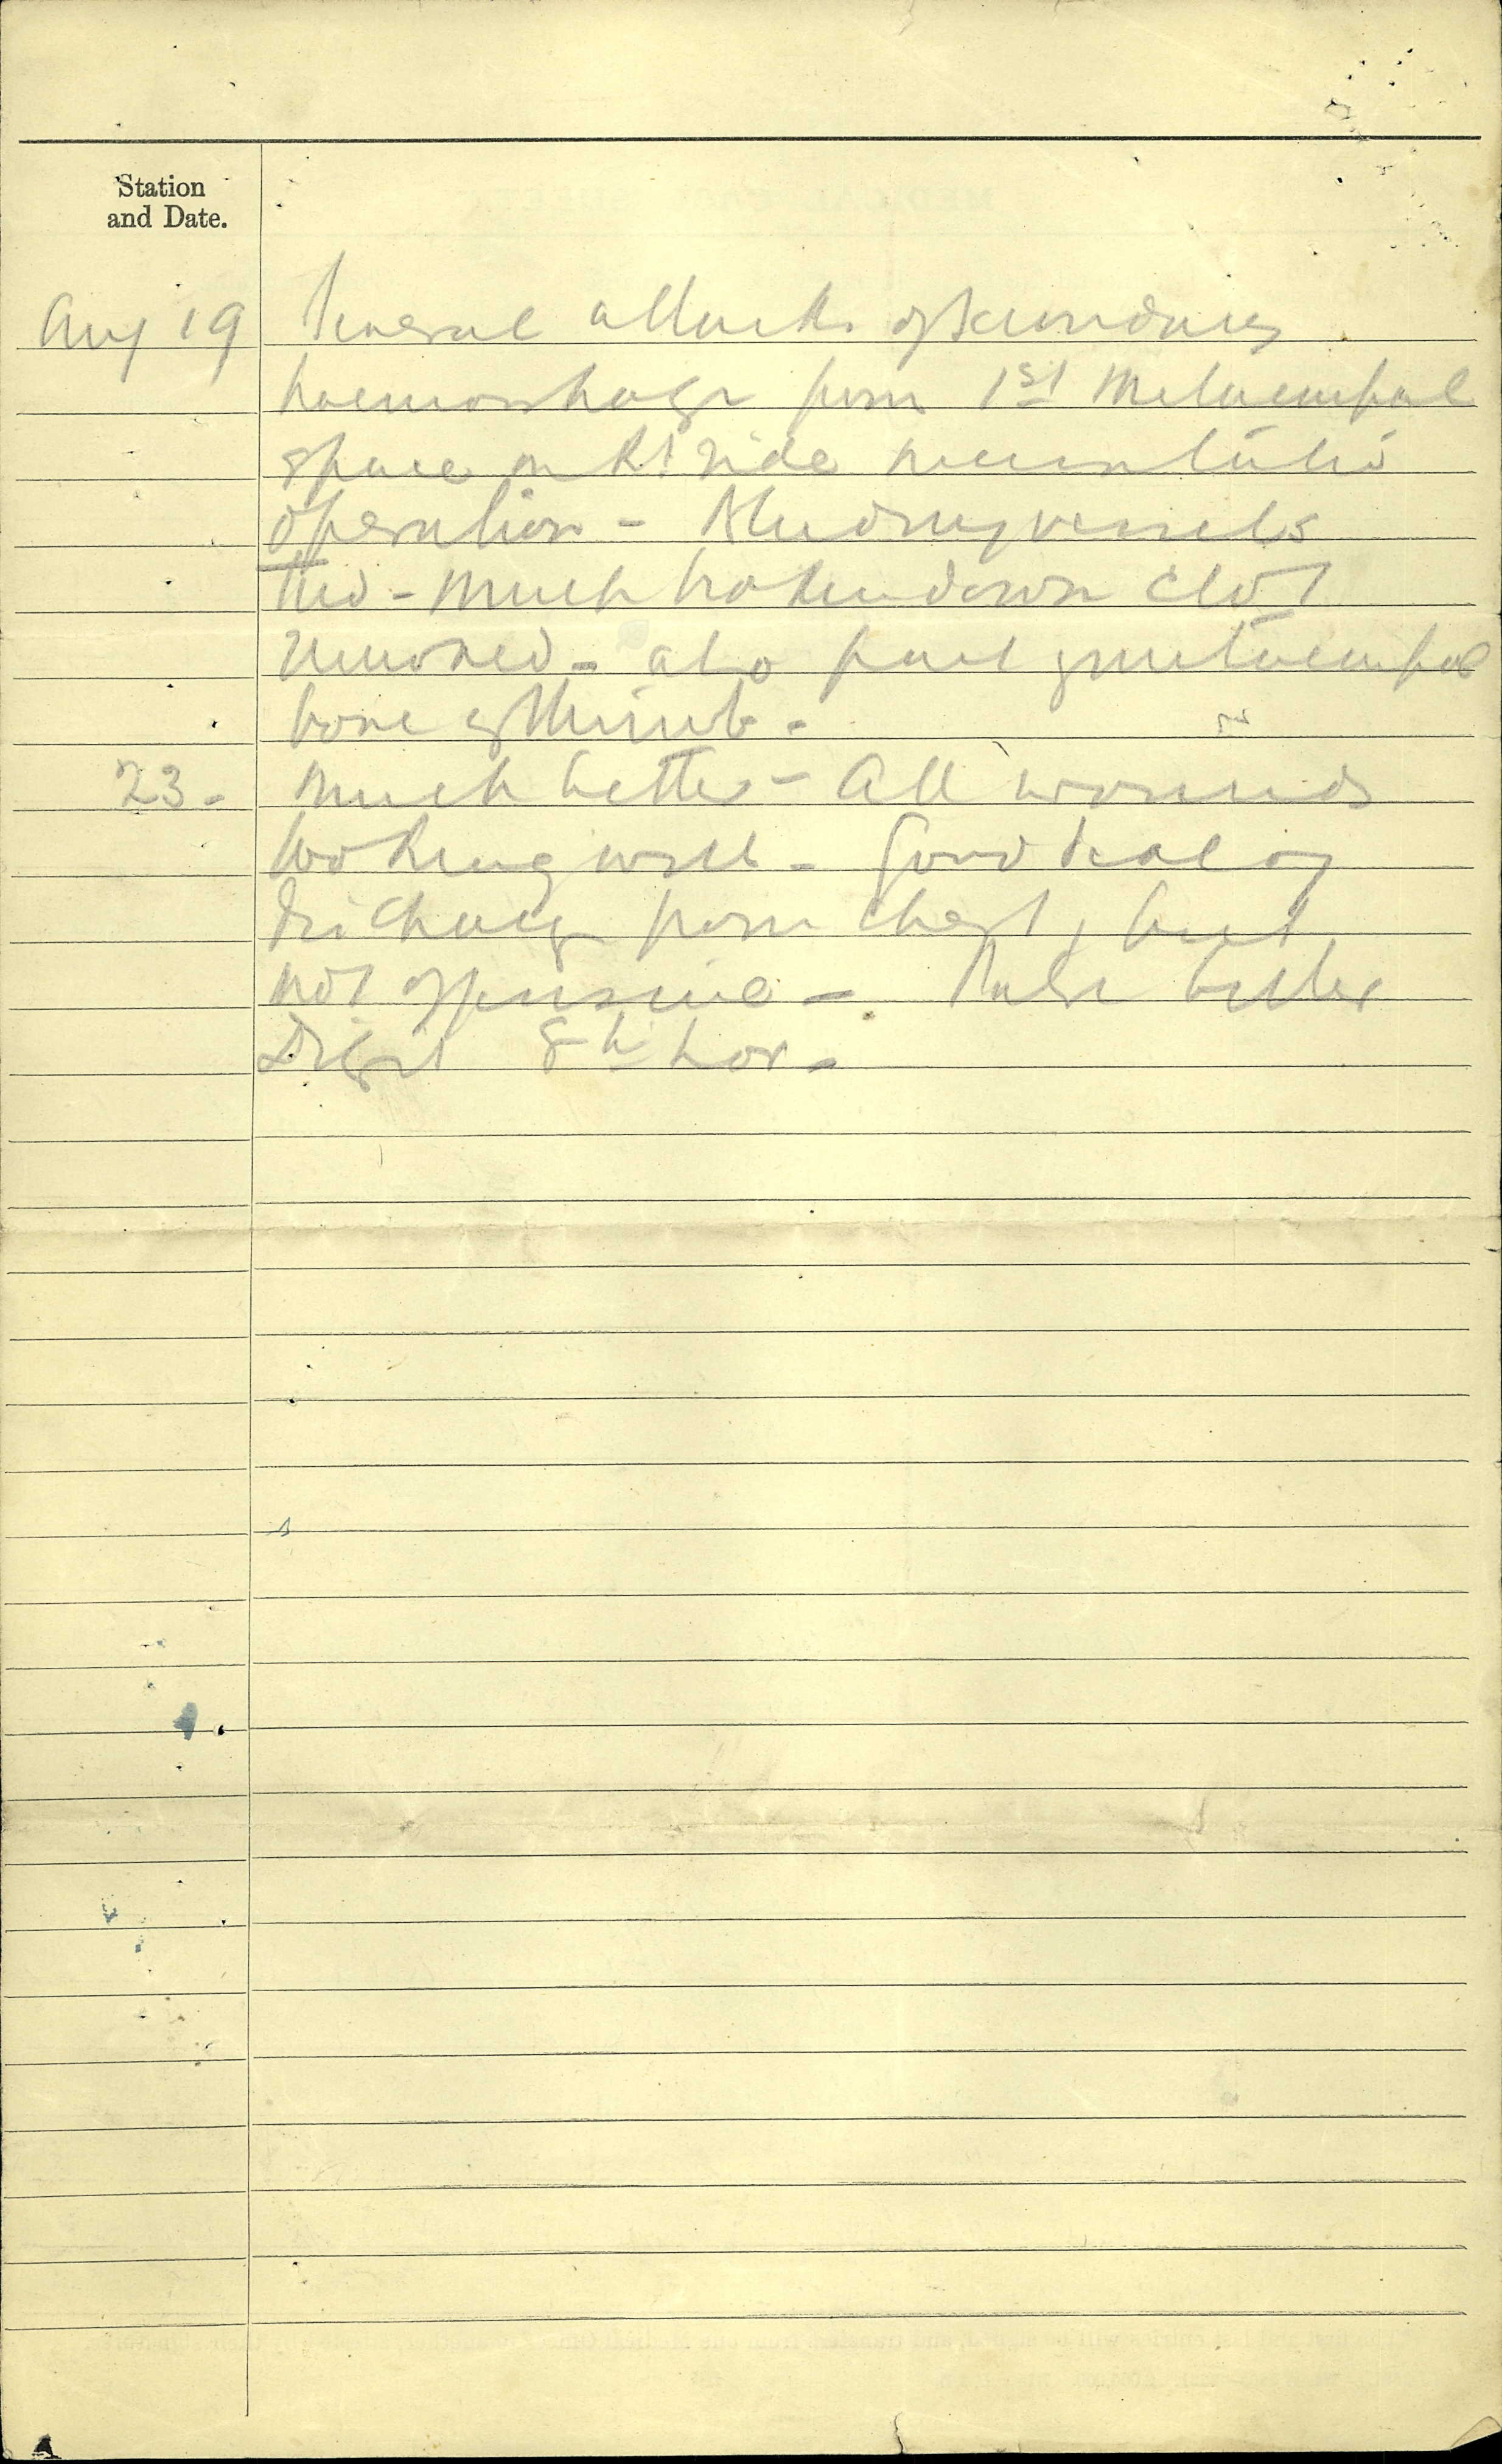 Station
and Date.
Aug 19 Several attacks of secondary
haemorrhage from 1st Metacarpal
space on Rt side necessitated
operation - Bleeding vessels
tied - Much broken down clot
removed - also part of metacarpal
bone of thumb -
23 - Much better - All wounds
looking well - Good deal of
discharge from chest, but
not offensive - Pulse better
Digit 8th hor -